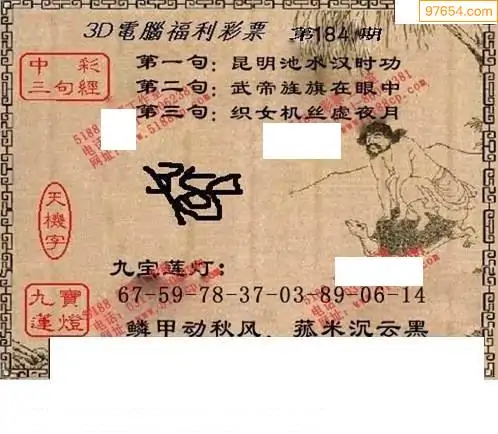 97654.com
3D電腦福利彩票 第184期
中彩
三句經
第一句：昆明池水汉时功
第二句：武帝旌旗在眼中
第三句：织女机丝虚夜月
天機字
九宝莲灯：
九寶蓮燈
67-59-78-37-03-89-06-14
鳞甲动秋风、菰米沉云黑